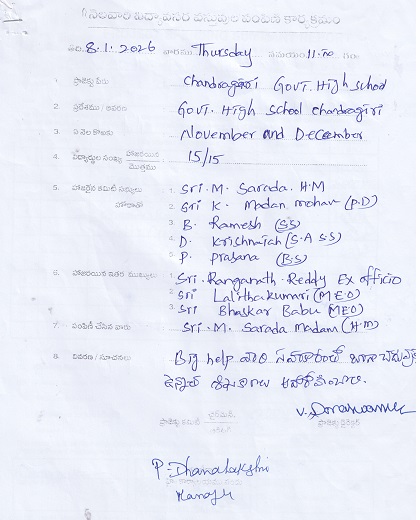 నెలవారి విద్యావసర వస్తువుల పంపిణీ కార్యక్రమం
తేది. 8.1.2026 వారము Thursday సమయం 11.00 గం.
1. ప్రాజెక్టు పేరు Chandragiri Govt. High school
2. ప్రదేశము / Govt. High school chandragiri
3. ఏ నెల కొరకు November and December
4. విద్యార్థుల సంఖ్య హాజరయినది / మొత్తము 15/15
5. హాజరైన కమిటీ సభ్యులు 1. Sri. M. Sarada. H.M
హోదాతో 2. Sri K. Madan mohan (P.D)
3. B. Ramesh (S.S)
4. D. Krishnaiah (S.A S.S)
5. P. prasana (B.S)
6. హాజరయిన ఇతర ముఖ్యులు 1. Sri. Ranganath Reddy Ex officio
2. Sri Lalithakumari (M E O)
3. Sri Bhaskar Babu (MEO)
7. పంపిణీ చేసిన వారు Sri. M. Sarada Madam (H.M)
8. వివరణ / సూచనలు Big help వారి సహకారంతో బాగా
ప్రాజెక్టు కమిటీ ఛైర్మన్ ప్రాజెక్టు డైరెక్టర్
P. Dhanalakshmi
Manager